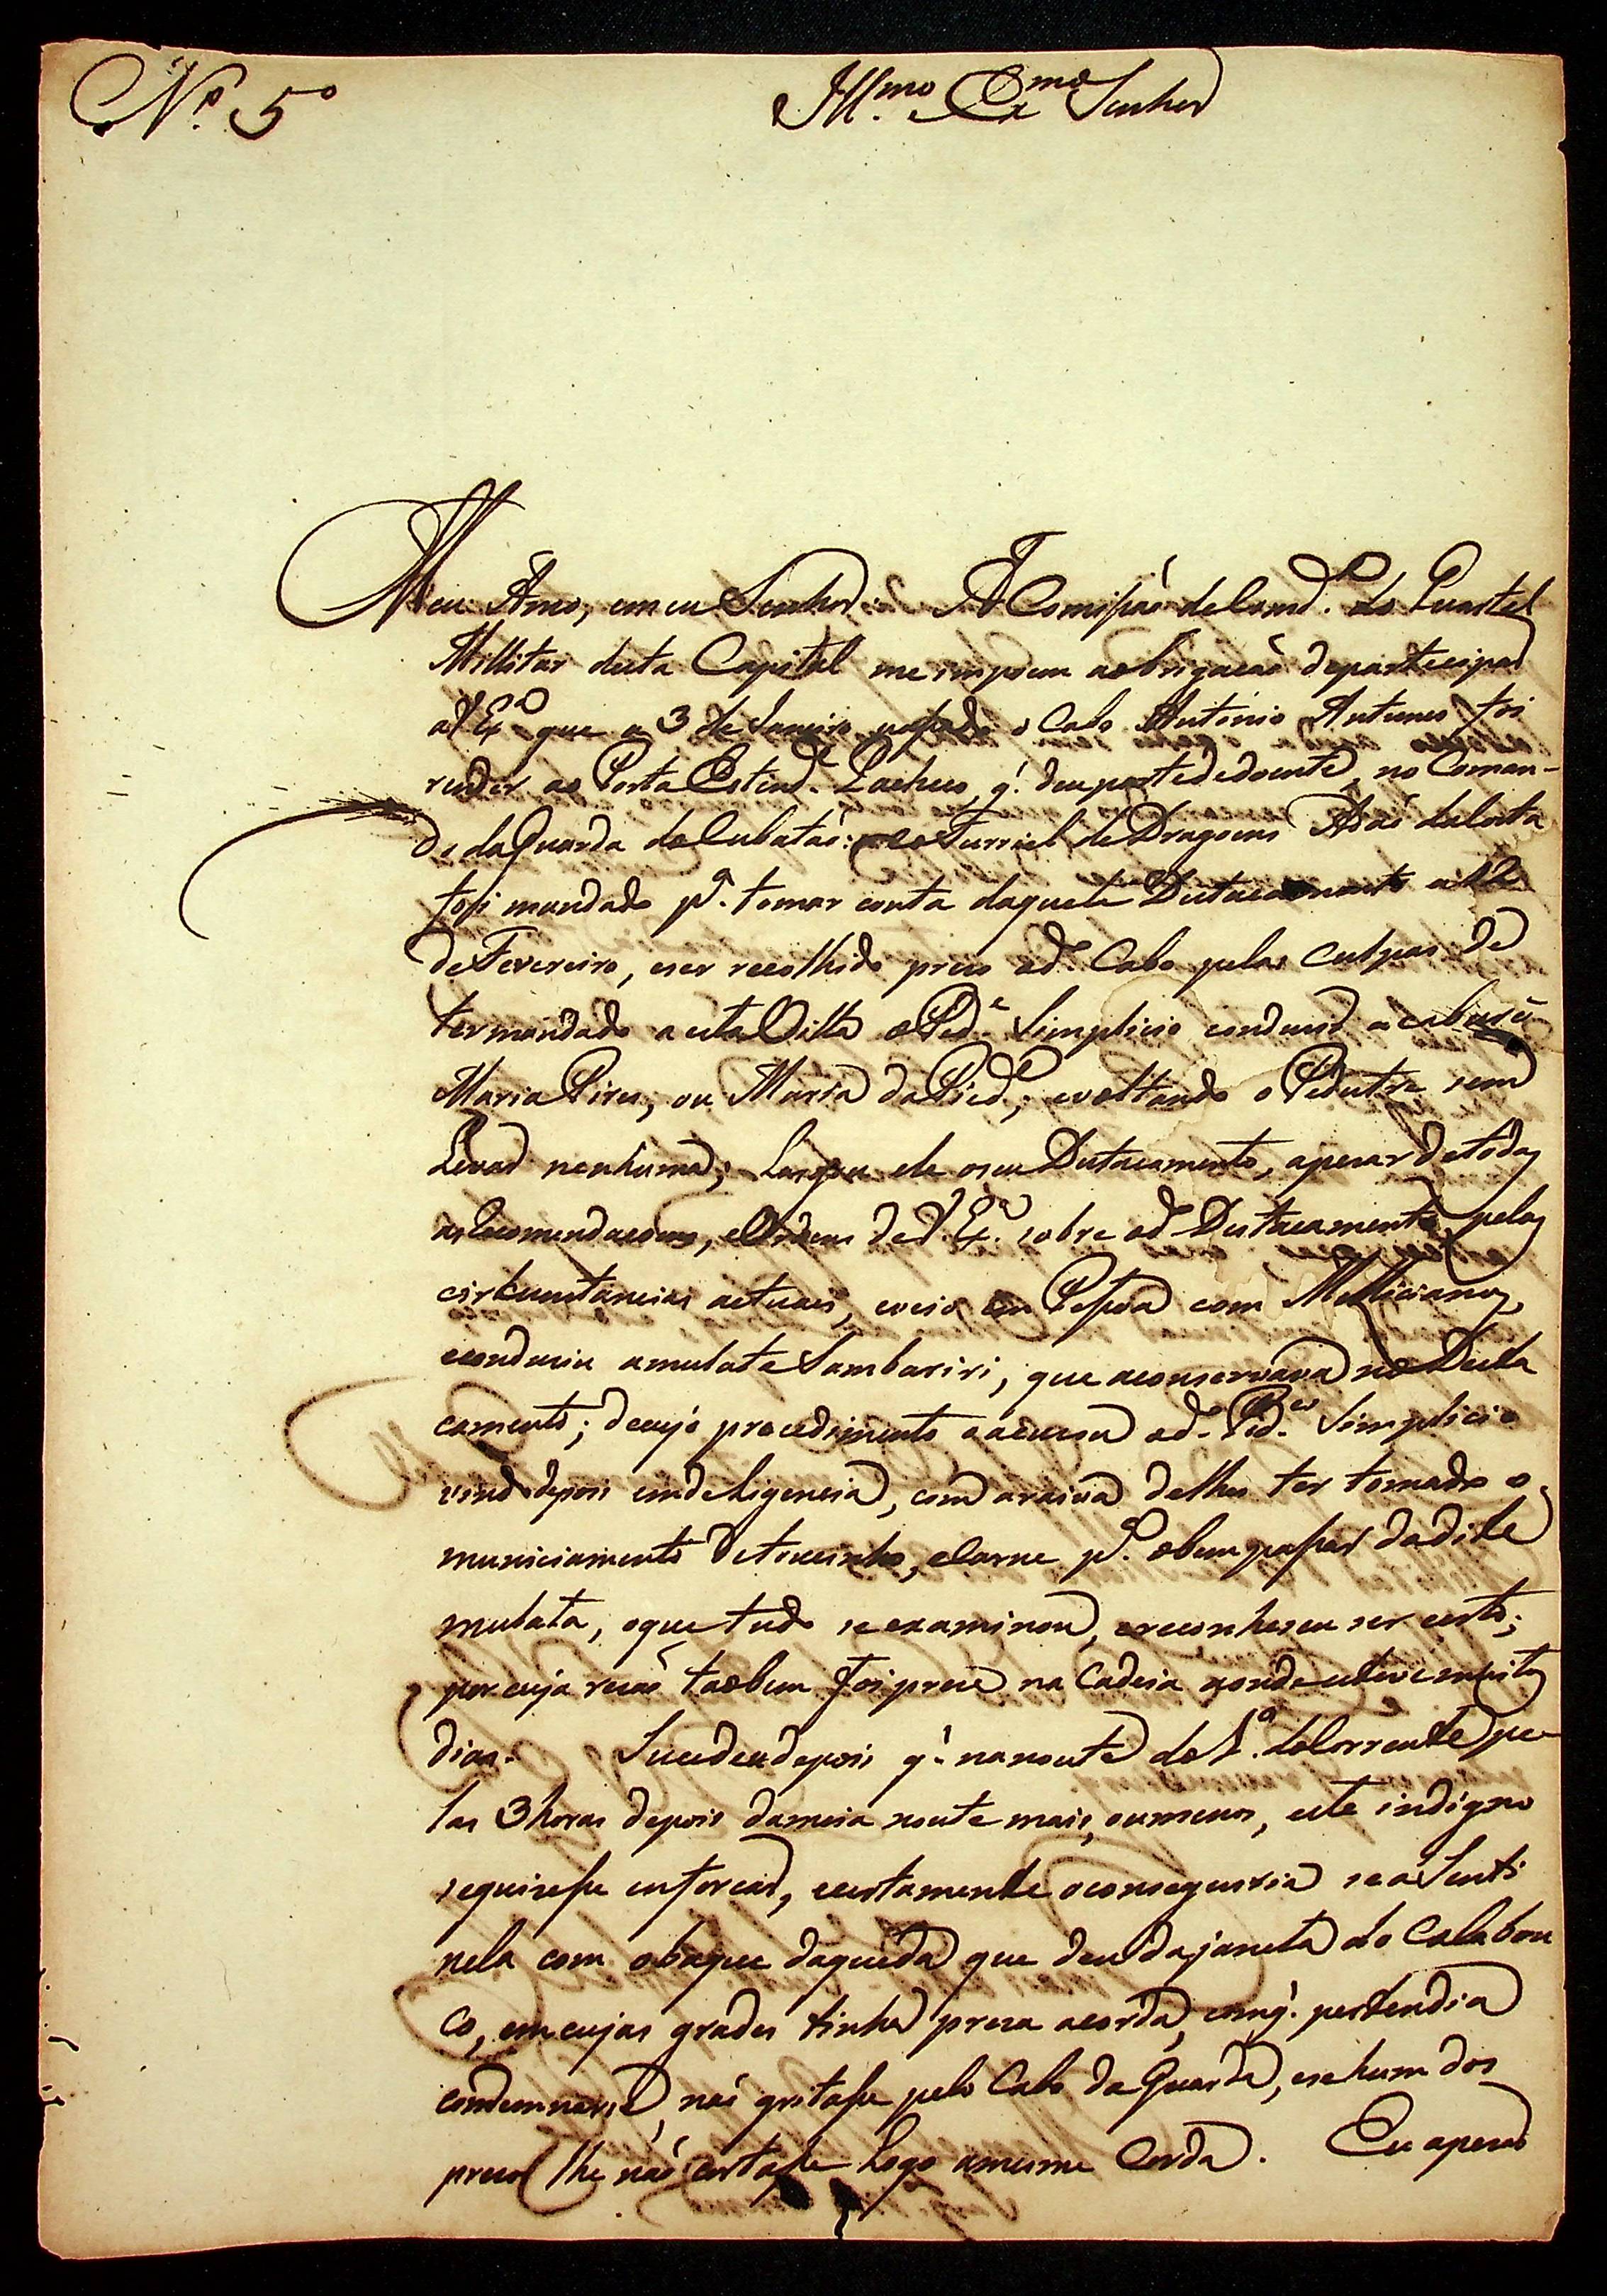 N.º 5º
Ill.mo Ex.mo Senhor
Meu Amo, emeu Senhor: A Comissaõ deComd.e do Quartel
Millitar desta Capital me impoem aobrigacaõ departecipar
aV Ex.a que a 3 de Janeiro passado o Cabo Antonio Antunes foi
render ao Porta Estend.e Pacheco, q.' deu partededoente, no Coman-
do daGuarda doCubataõ: eo Furriel deDragoens Adaõ daCosta
foi mandado p.a tomar conta daquele Destacamento
deFevereiro, eser recolhido prezo od.o Cabo pelas Culpas de
termandado aesta Villa o Ped.e Simplicio conduzir
Maria Pires, ou Maria daPied.e; evoltando o Pedestre sem
Levar nenhuma; Largou ele oseu Destacamento, apezar detodas
asRecomendacoens, eOrdens deV Ex.a sobre od.o Destacamento pelas
circumstancias actuais, eveio em Pessoa com Milliciano,
econduziu amulata Sambariri, que aconservava no Desta
camento; decujo procedimento oacuzou od.o Ped.e Simplicio
vindo depois emdeligencia, com araiva delhes ter tomado o
municiamento deToucinho, eCarne p.a obem passar dadita
mulata, oque tudo seexaminou, ereconheseu ser certo;
por cuja rezaõ taobem foi preza na Cadeia aonde esteve muitos
dias. Sucedeu depois q.' nanoute do 1.o doCorrente pe-
las 3 horas depois dameia noute mais, oumenos, este indigno
sequizesse enforcar, ecertamente oconseguiria sea Senti
nela com obaque daqueda que deu dajanela do Calabou
co, emcujas grades tinha preza acorda, comq.' pertendia
condemnarse, naõ gritasse pelo Cabo da Guarda, esehum dos
prezos lhe naõ cortasse Logo amesma Corda. Eu apenas